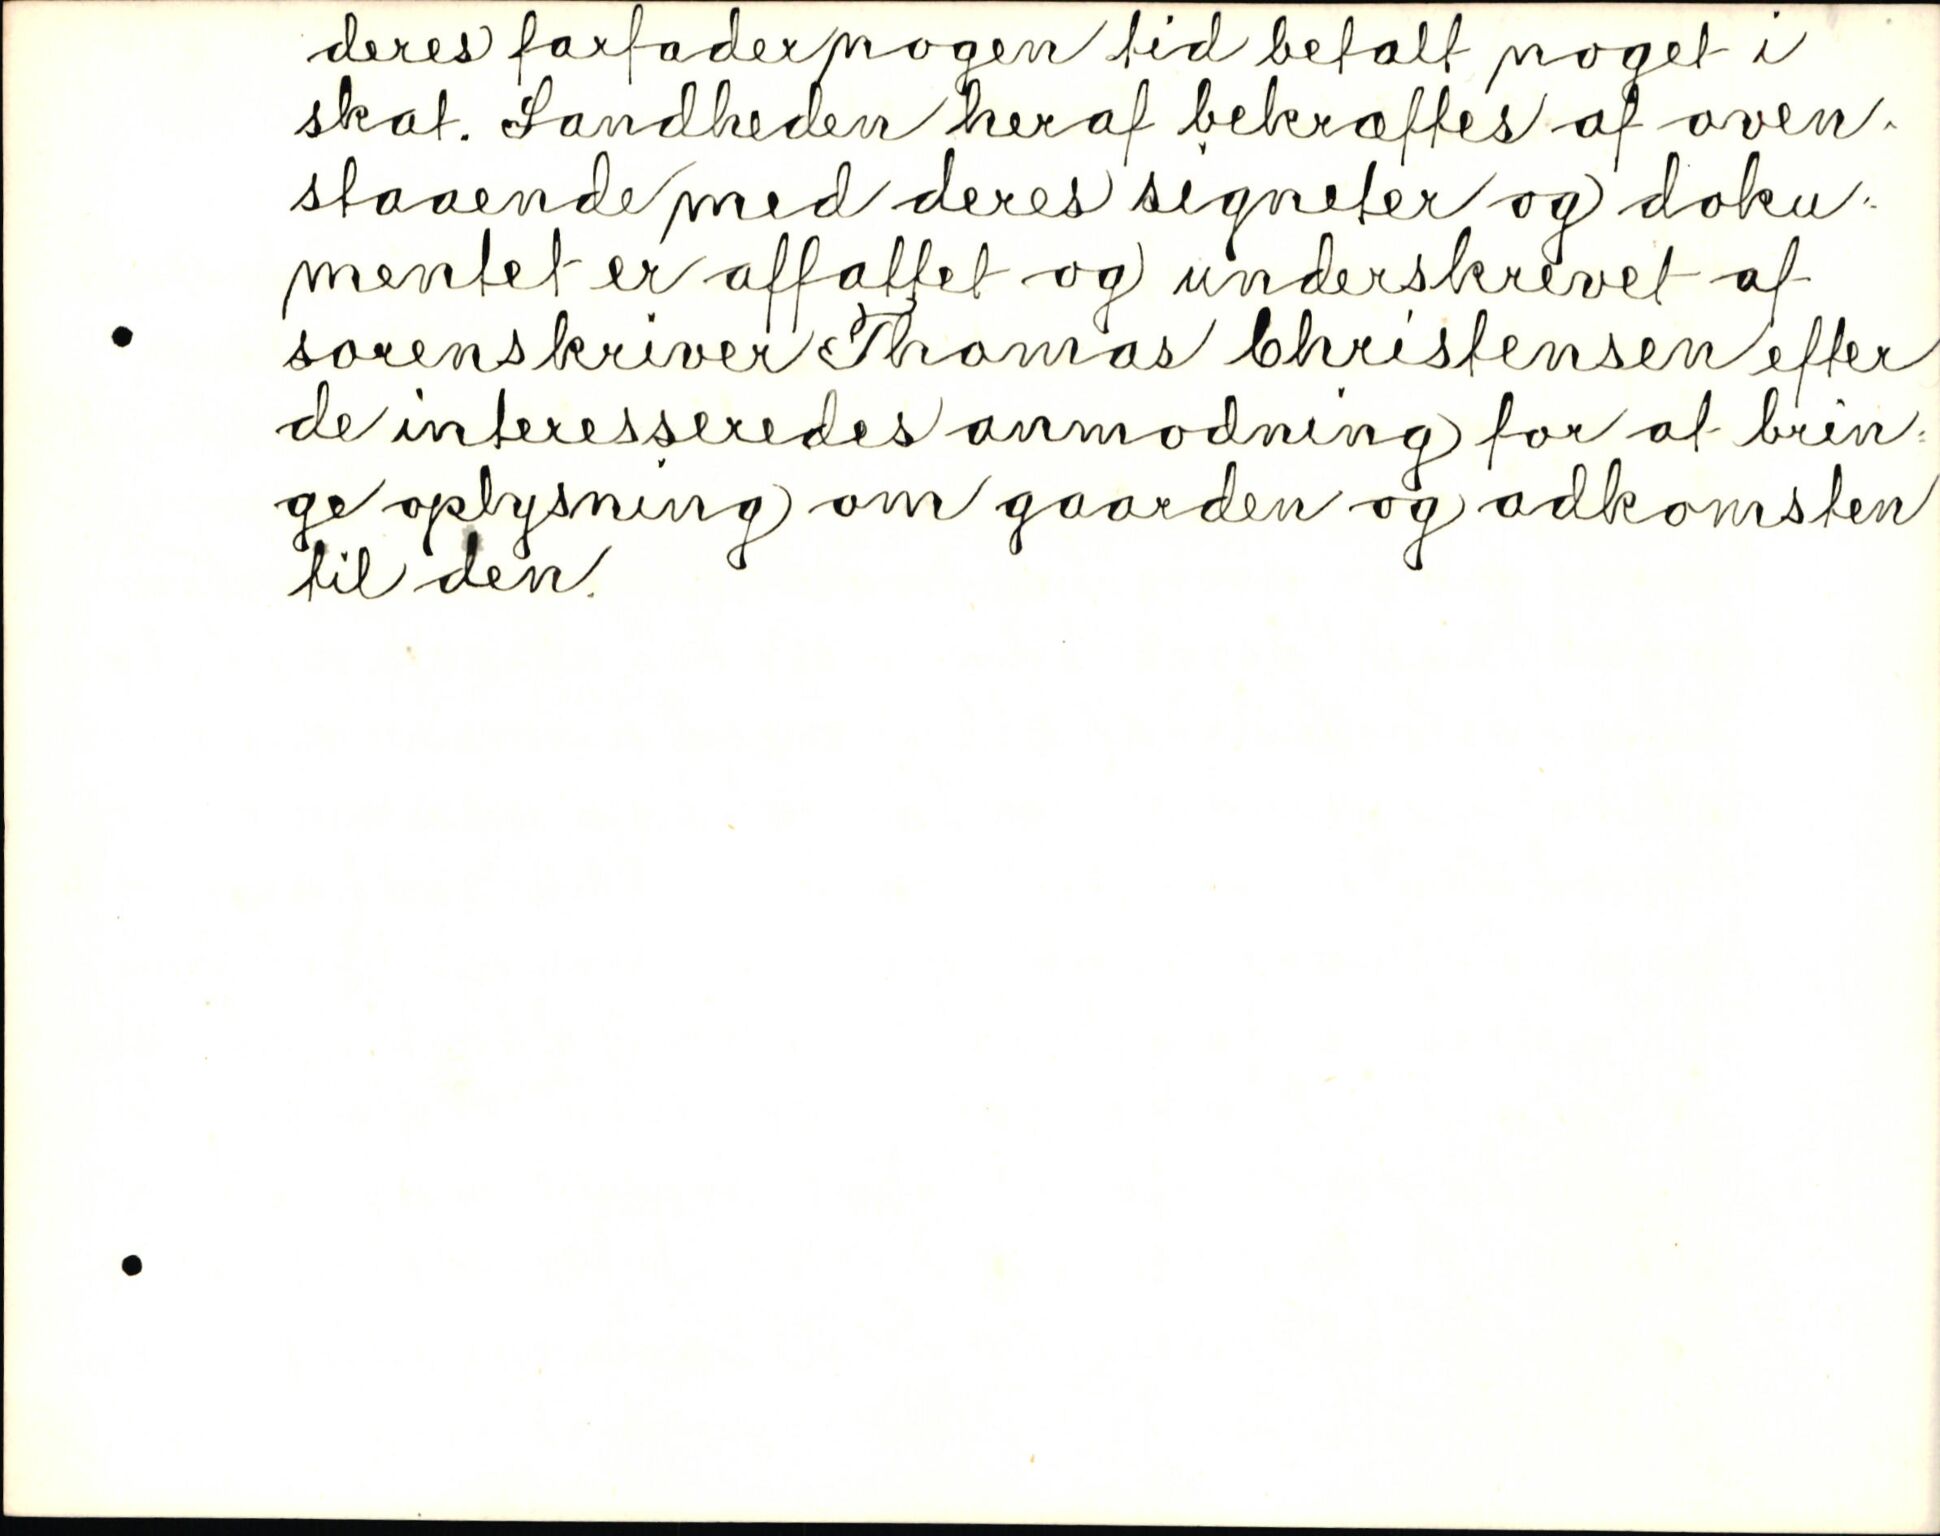 deres farfader nogen tid betalt noget i
skat. Sandheden heraf bekræftes af oven-
staaende med deres signeter og doku-
mentet er affattet og underskrevet af
sorenskriver Thomas Christensen efter
de interesseredes anmodning for at brin-
ge oplysning om gaarden og adkomsten
til den.